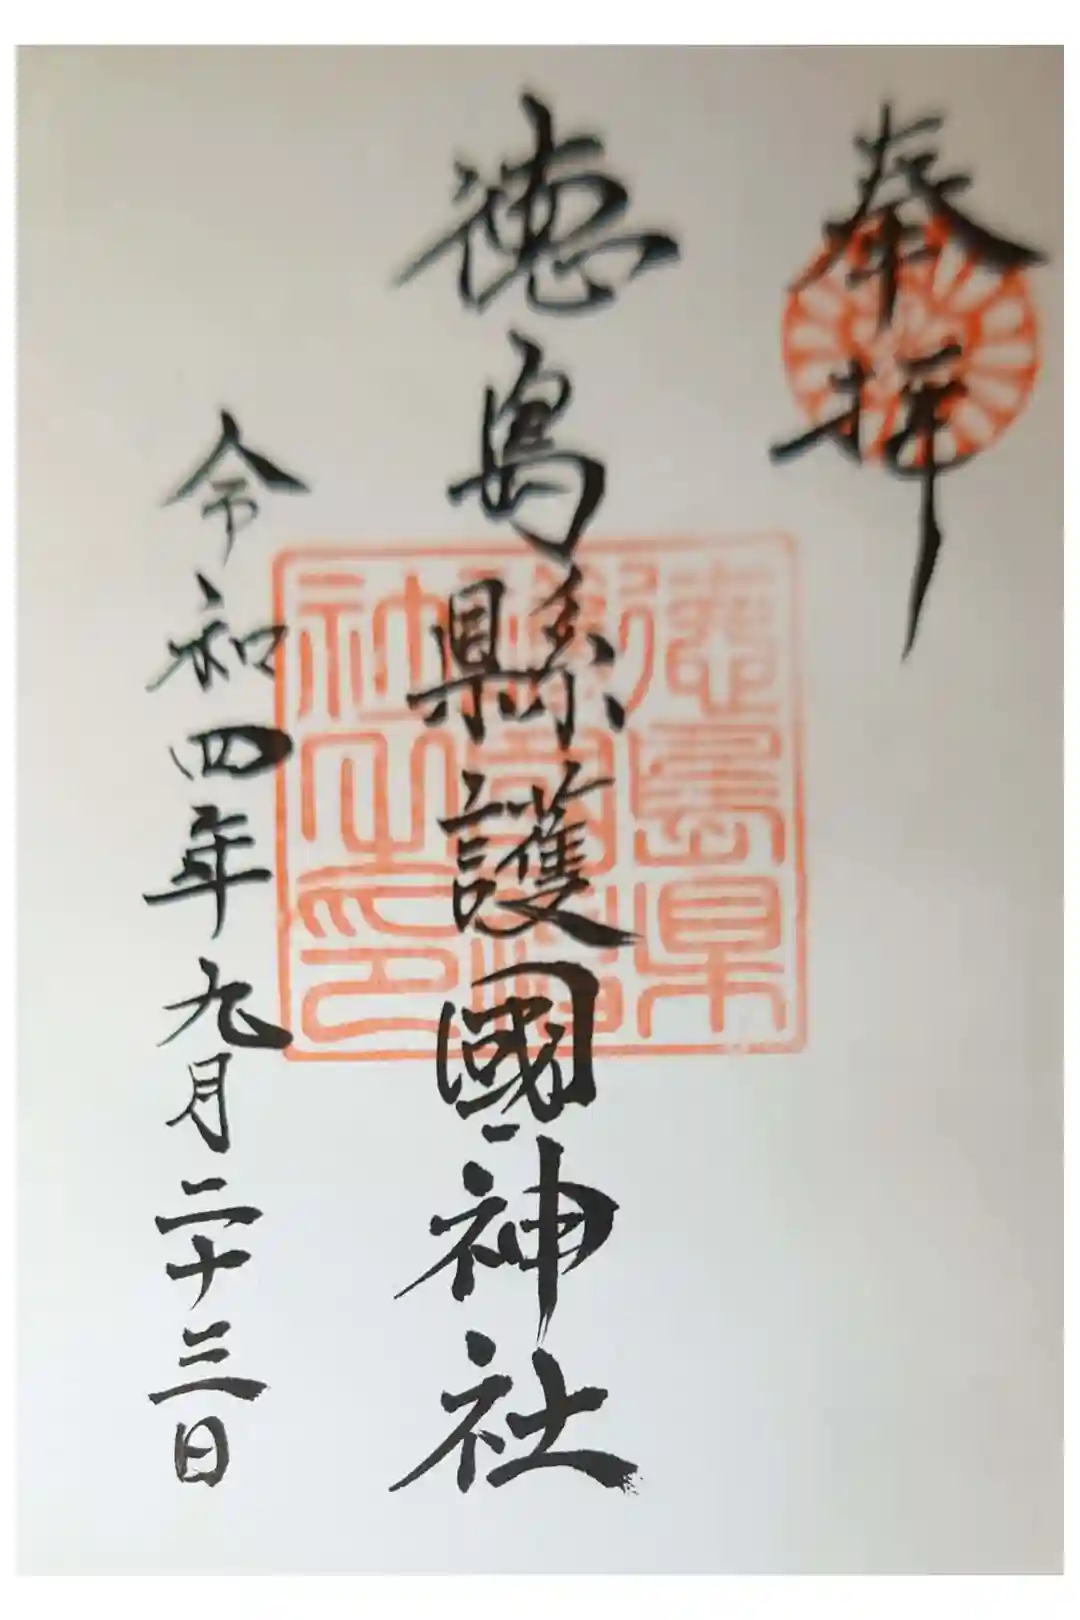 奉拝
徳島縣護國神社
徳島県
護國神
社之印
令和四年九月二十三日